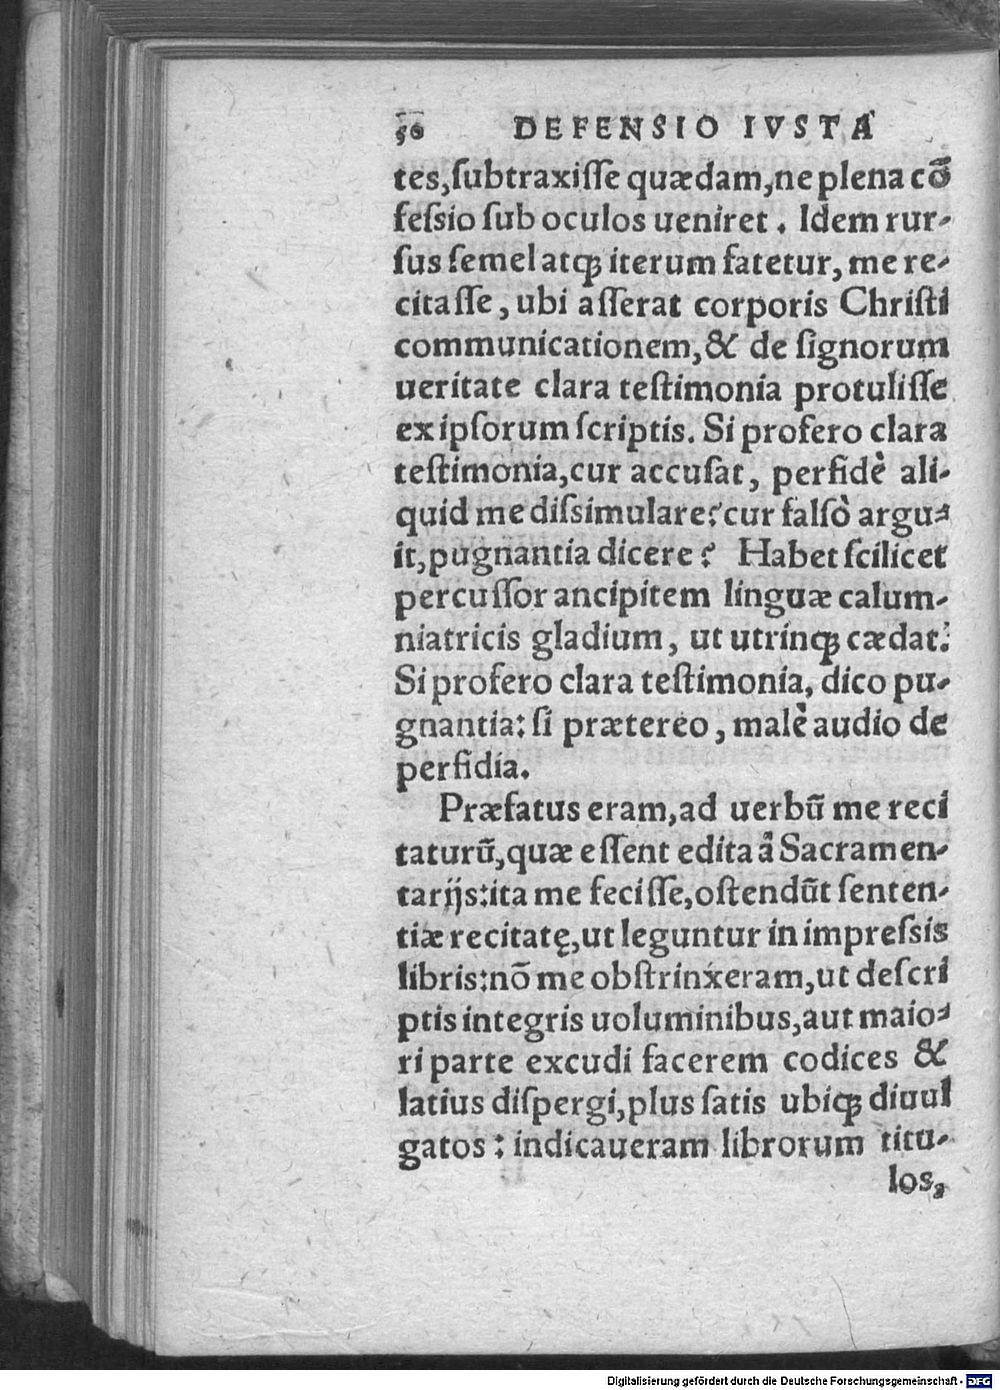 50 DEFENSIO IVSTA
tes,ſubtraxiſſe quædam,ne plena cõ
feſsio ſub oculos ueniret. Idem rur-
ſus ſemel atq̃ iterum fatetur, me re-
citaſſe, ubi aſſerat corporis Chriſti
communicationem,& de ſignorum
ueritate clara teſtimonia protuliſſe
ex ipſorum ſcriptis. Si profero clara
teſtimonia,cur accuſat, perfidè ali-
quid me diſsimulare?cur falſò argu-
it,pugnantia dicere? Habet ſcilicet
percuſſor ancipitem linguæ calum-
niatricis gladium, ut utrinq̃ cædat:
Si profero clara teſtimonia, dico pu-
gnantia: ſi prætereo, malè audio de
perfidia.
Præfatus eram,ad uerbũ me reci
taturũ,quæ eſſent edita à Sacramen-
tarijs:ita me feciſſe,oſtendũt ſenten-
tiæ recitatę,ut leguntur in impreſsis
libris:nõ me obſtrinxeram,ut deſcri
ptis integris uoluminibus,aut maio-
ri parte excudi facerem codices &
latius diſpergi,plus ſatis ubiq̃ diuul
gatos: indicaueram librorum titu-
los,
Digitalisierung gefördert durch die Deutsche Forschungsgemeinschaft - DFG